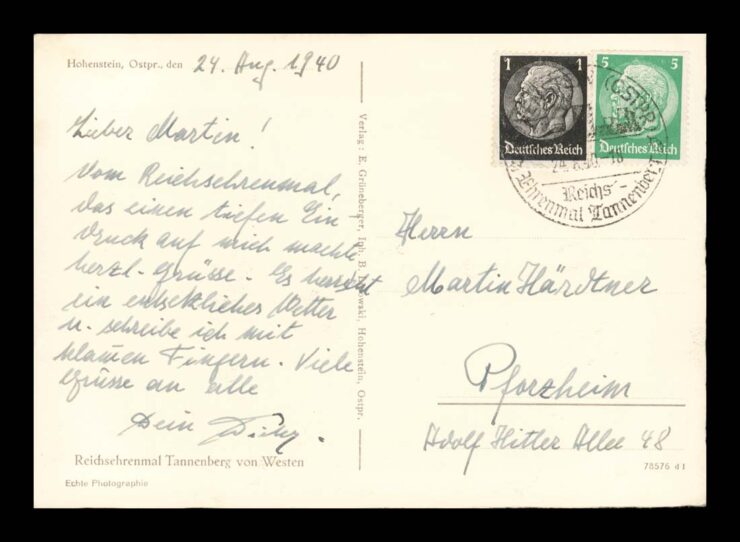 Hohenstein, Ostpr., den 24. Aug. 1940
Lieber Martin!
Vom Reichsehrenmal,
das einen tiefen Ein-
druck auf mich machte
herzl. Grüsse. Es herrscht
ein entsetzliches Wetter
u. schreibe ich mit
klammen Fingern. Viele
Grüsse an alle
Dein
Reichsehrenmal Tannenberg von Westen
Echte Photographie
Verlag: E. Grüneberger, Inh. B. Hohenstein, Ostpr.
1 1
Deutsches Reich
5 5
Deutsches Reich
(OSTPR)
24.8.40
Reichs-
Ehrenmal Tannenberg
Herrn
Martin Härdtner
Pforzheim
Adolf Hitler Allee 48
78576 d 1